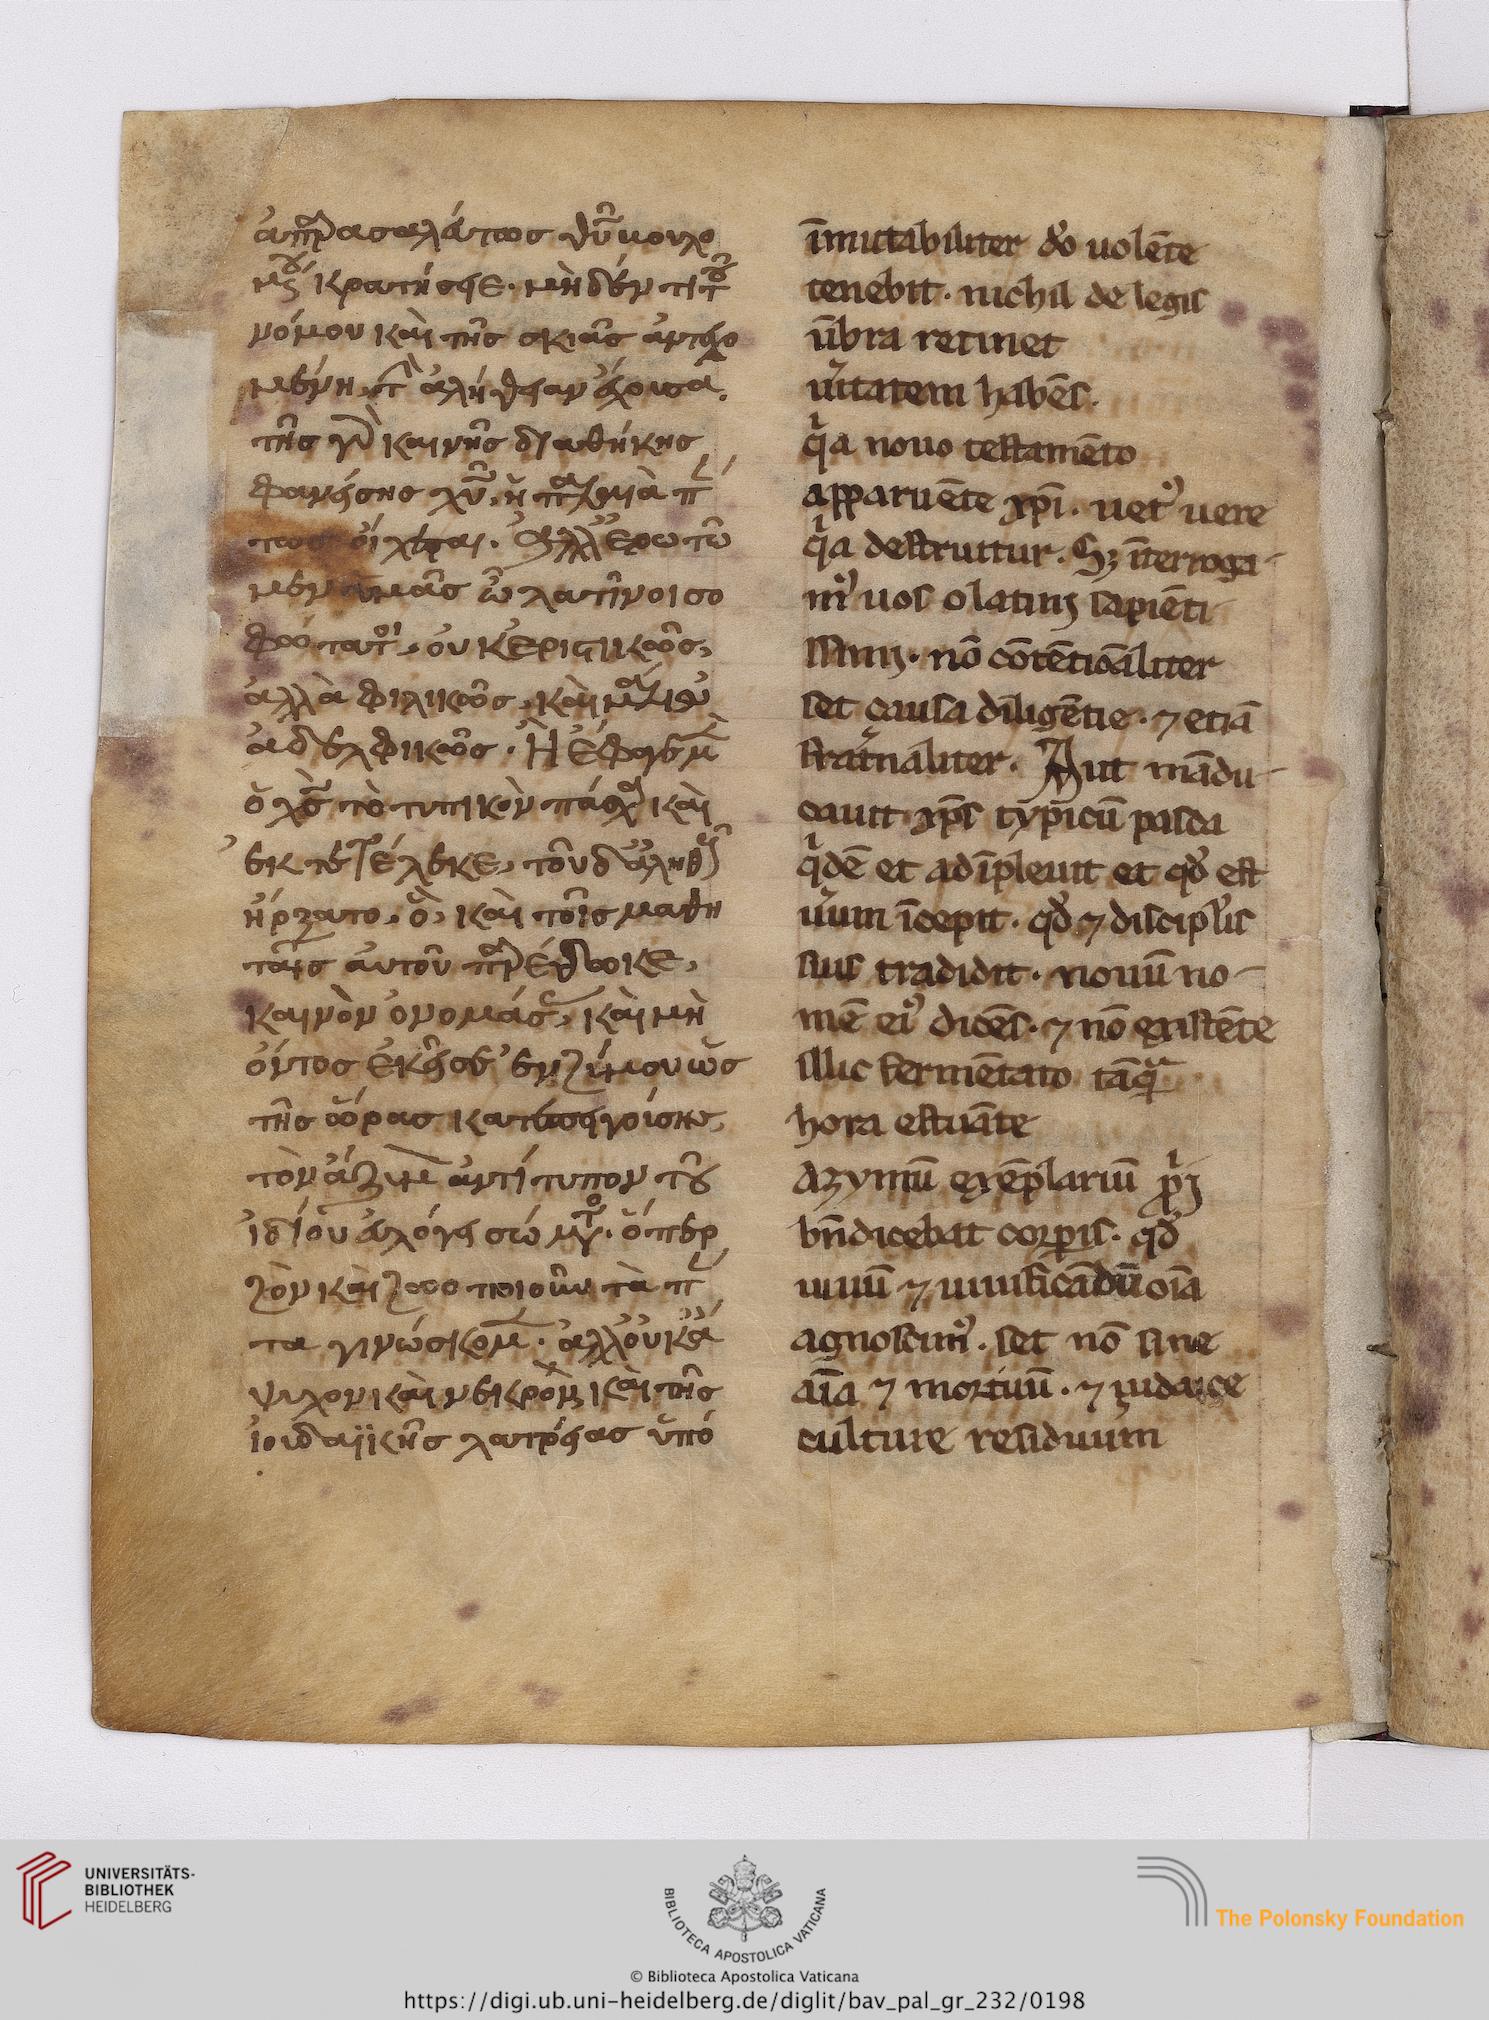 ἀπαρασαλεύτως θῦ μου χο
μ κρατήσῃε· μηδὲν τι τοῦ
νόμου καὶ τῆς σκιᾶς ἀντεχο
μένη, τ ἀλήθειαν ἔχουσα.
τῆς γὰρ καινῆς διαθήκης
φανείσης χῦ, ἡ παλαιὰ π
μεν ὑμᾶς ὦ λατῖνοι σο
φώτατοι, οὐκ ἐριστικῶς,
ἀλλὰ φιλικῶς, καὶ μᾶλλον
ἀδελφικῶς· Ἢ ἔφαγε μ
ὁ χς τὸ τυπικὸν πάσχα καὶ
ἤρξατο, ὃ, καὶ τοῖς μαθη
ταῖς αὐτοῦ παρέδωκε,
καινὸν ὀνομάσ, καὶ μὴ
ὄντος ἐκεῖσε ἐνζύμου ὡς
τῆς ὥρας κατεπειγούσης,
τὸν ἄζυμ ἀντίτυπον τοῦ
ἰδίου εὐλόγει σώματος· ὅπερ
ζὸν καὶ ζωοποιοῦν τὰ π
τα γινώσκομ· ἀλλ οὐκ ἄ
ψυχον καὶ νεκρὸν, καὶ τῆς
ἰουδαϊκῆς λατρείας ὑπό
īmutabiliter do uolēte
tenebit· nichil de legis
ūbra retinet
uitatem habēs.
qia nouo testamēto
apparuēte xpi. uet9 uere
qia destruitur. Sꝫ īterroga-
m9 uos o latinj sapiēti
ssimj· nō cōtētiōaliter
set causa diligētie· ⁊ etiā
fratnaliter. Aut mādu-
cauit xps typicū pasca
qidē et adīpleuit et qd est
uum īcepit· qd ⁊ discipłis
suis tradidit· nouū no-
mē ei9 dicēs· ⁊ nō existēte
illic fermētato tāqa
hora estuāte
azymū exēplariū prij
bn̄dicebat corpis· qd
uiuū ⁊ uiuificādū oīa
agnoscim9. set nō sine
aīa ⁊ mortuū· ⁊ iudaice
culture residuum
UNIVERSITÄTS-
BIBLIOTHEK
HEIDELBERG
BIBLIOTECA APOSTOLICA VATICANA
The Polonsky Foundation
© Biblioteca Apostolica Vaticana
https://digi.ub.uni-heidelberg.de/diglit/bav_pal_gr_232/0198